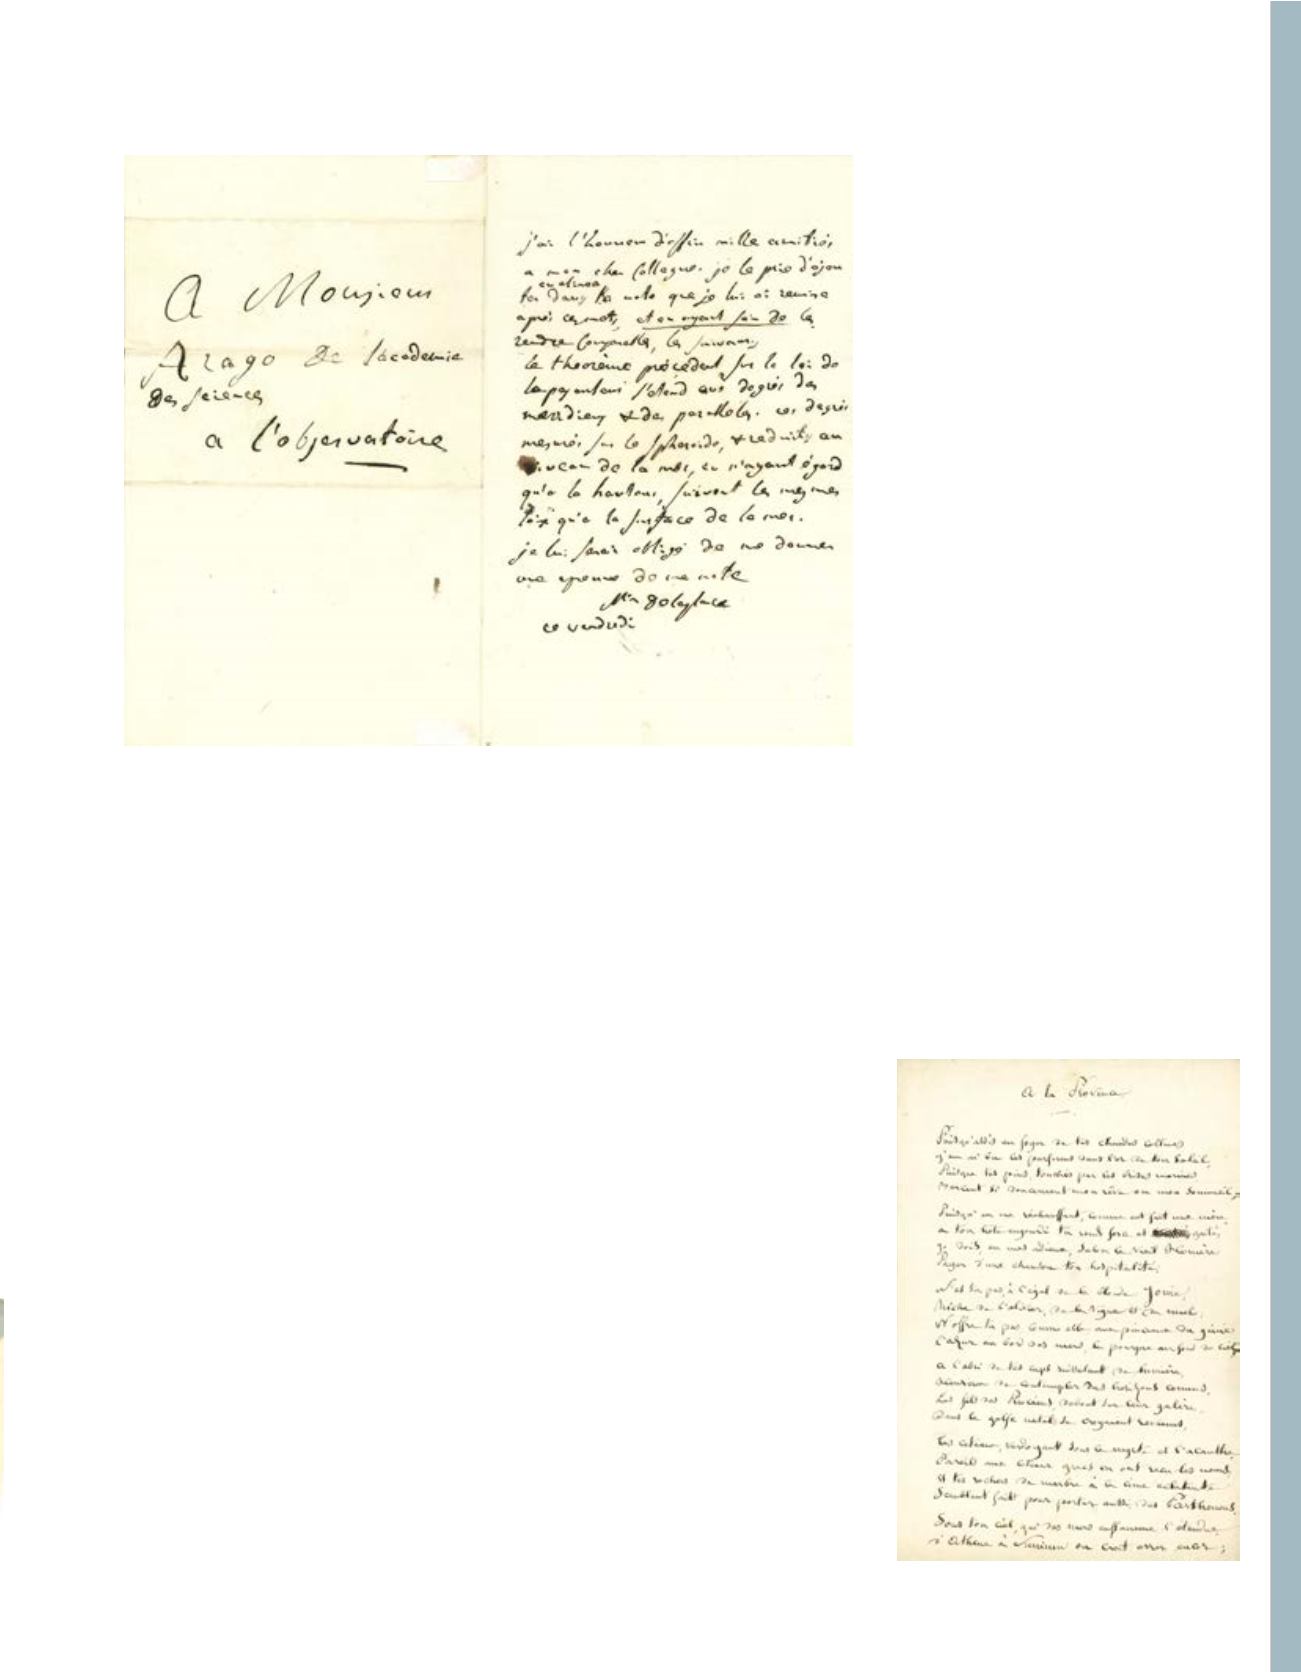 A Monsieur
Arago de l'academie
des sciences
a l'observatoire
j'ai l'honneur d'offrir mille amitiés
a mon cher Collegue. je le prie d'ajou
ter dans la note que je lui ai remise
après ces mots, et en ayant soin de les
rendre comparables, les suivans,
le théorème précédent sur la loi de
la pesanteur s'étend aux degrés des
meridiens & des paralleles. ces degrés
mesurés sur le spheroide, & reduits au
niveau de la mer, en n'ayant égard
qu'a la hauteur, suivent les mesmes
loix qu'a la surface de la mer.
je lui serais obligé de me donner
une epreuve de ma note
Mis de laplace
ce vendredi
A la Provence
Puisqu'assis au foyer de tes chaudes collines
j'en ai bu les parfums dans l'or de ton soleil,
Puisque tes pins, touchés par les brises marines
Bercent si doucement mon rêve ou mon sommeil,
Puisqu'en me réchauffant, comme eut fait une mère,
a ton hôte engourdi tu rends force et gaité,
je dois, en mes adieux, selon le vieil Homère
Payer d'une chanson ton hospitalité;
N'es tu pas, à l'égal de la blonde Ionie,
Riche de l'olivier, de la vigne et du miel;
N'offres tu pas comme elle aux pinceaux du génie
L'azur au bord des mers, la pourpre au fond du ciel,
a l'abri de tes caps ruisselant de lumière,
Heureux de contempler des horizons connus,
Les fils des Phocéens, debout sur leur galère,
Dans le golfe natal se croyaient revenus.
Tes coteaux, verdoyant sous le myrte et l'acanthe,
Pareils aux coteaux grecs en ont reçu les noms,
Et tes rochers de marbre à la cime éclatante
Semblent faits pour porter aussi des Parthenons.
Sous ton ciel, qui des mers enflamme l'étendue,
d'Athène à Sunium on croit errer encor;